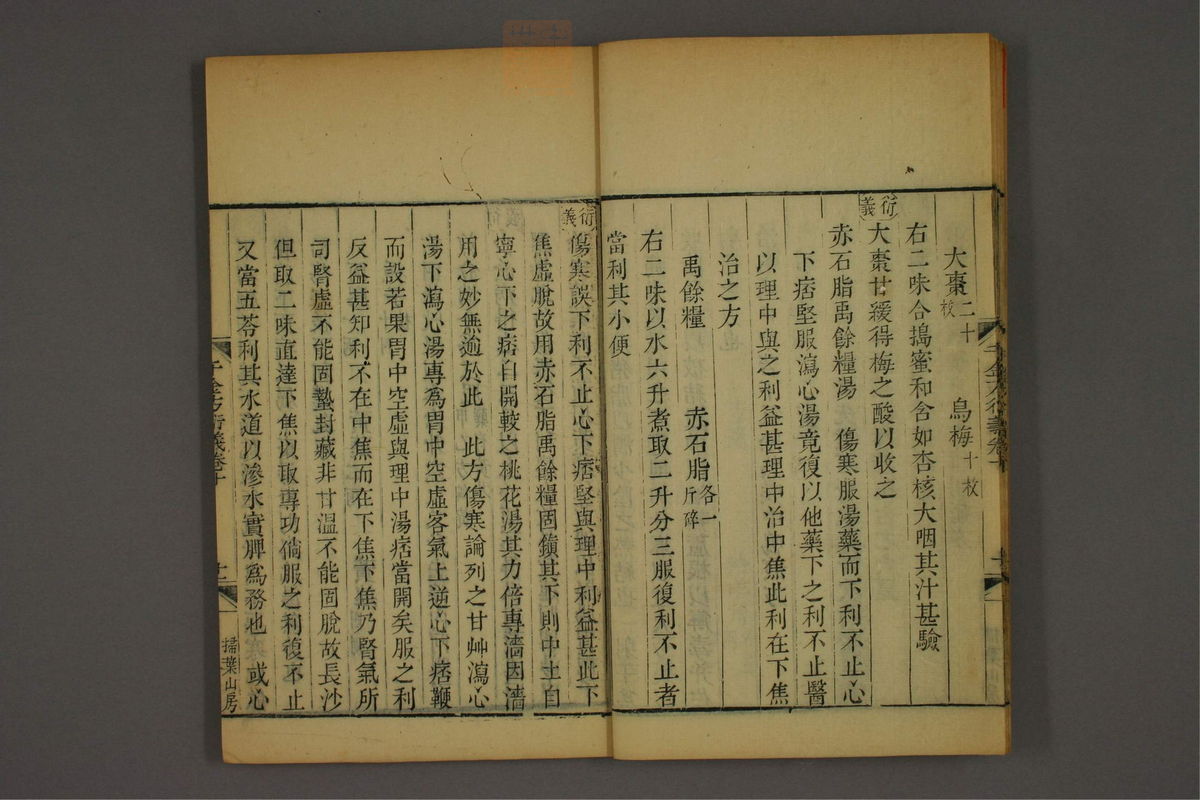 大棗二十枚　烏梅十枚
右二味合搗蜜和含如杏核大咽其汁甚驗
衍義
大棗甘緩得梅之酸以收之
赤石脂禹餘糧湯　傷寒服湯藥而下利不止心
下痞堅服瀉心湯竟復以他藥下之利不止醫
以理中與之利益甚理中治中焦此利在下焦
治之方
禹餘糧　赤石脂各一斤碎
右二味以水六升煮取二升分三服復利不止者
當利其小便
衍義
傷寒誤下利不止心下痞堅與理中利益甚此下
焦虛脫故用赤石脂禹餘糧固鎮其下則中土自
寧心下之痞自開較之桃花湯其力倍專濇因濇
用之妙無逾於此　此方傷寒論列之甘艸瀉心
湯下瀉心湯專爲胃中空虛客氣上逆心下痞鞕
而設若果胃中空虛與理中湯痞當開矣服之利
反益甚知利不在中焦而在下焦下焦乃腎氣所
司腎虛不能固蟄封藏非甘溫不能固脫故長沙
但取二味直達下焦以取專功倘服之利復不止
又當五苓利其水道以滲水實脾爲務也　或心
千金方衍義卷十
掃葉山房